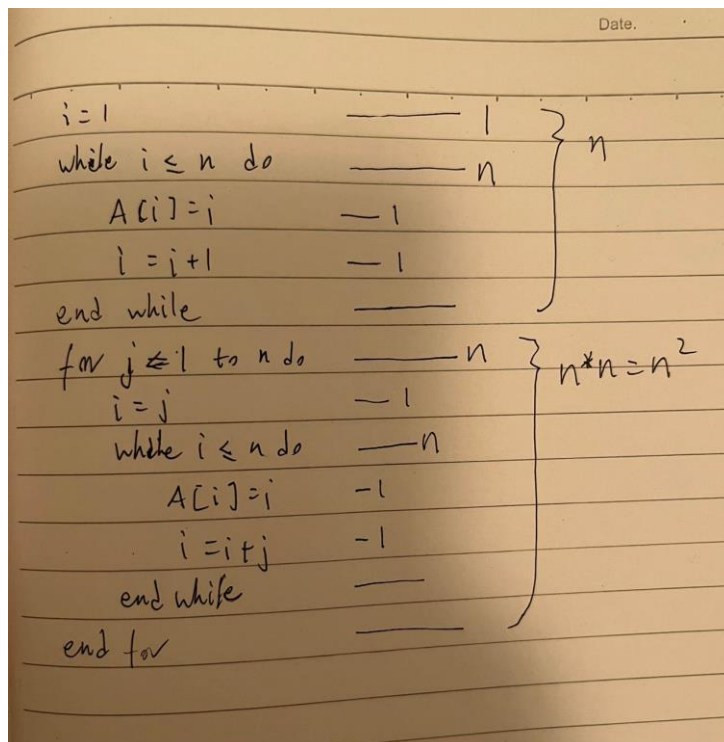 Date.
i = 1 — 1
while i ≤ n do — n } n
A[i] = i — 1
i = i+1 — 1
end while —
for j ⇐ 1 to n do — n } n*n = n²
i = j — 1
while i ≤ n do — n
A[i] = i - 1
i = i+j - 1
end while —
end for —